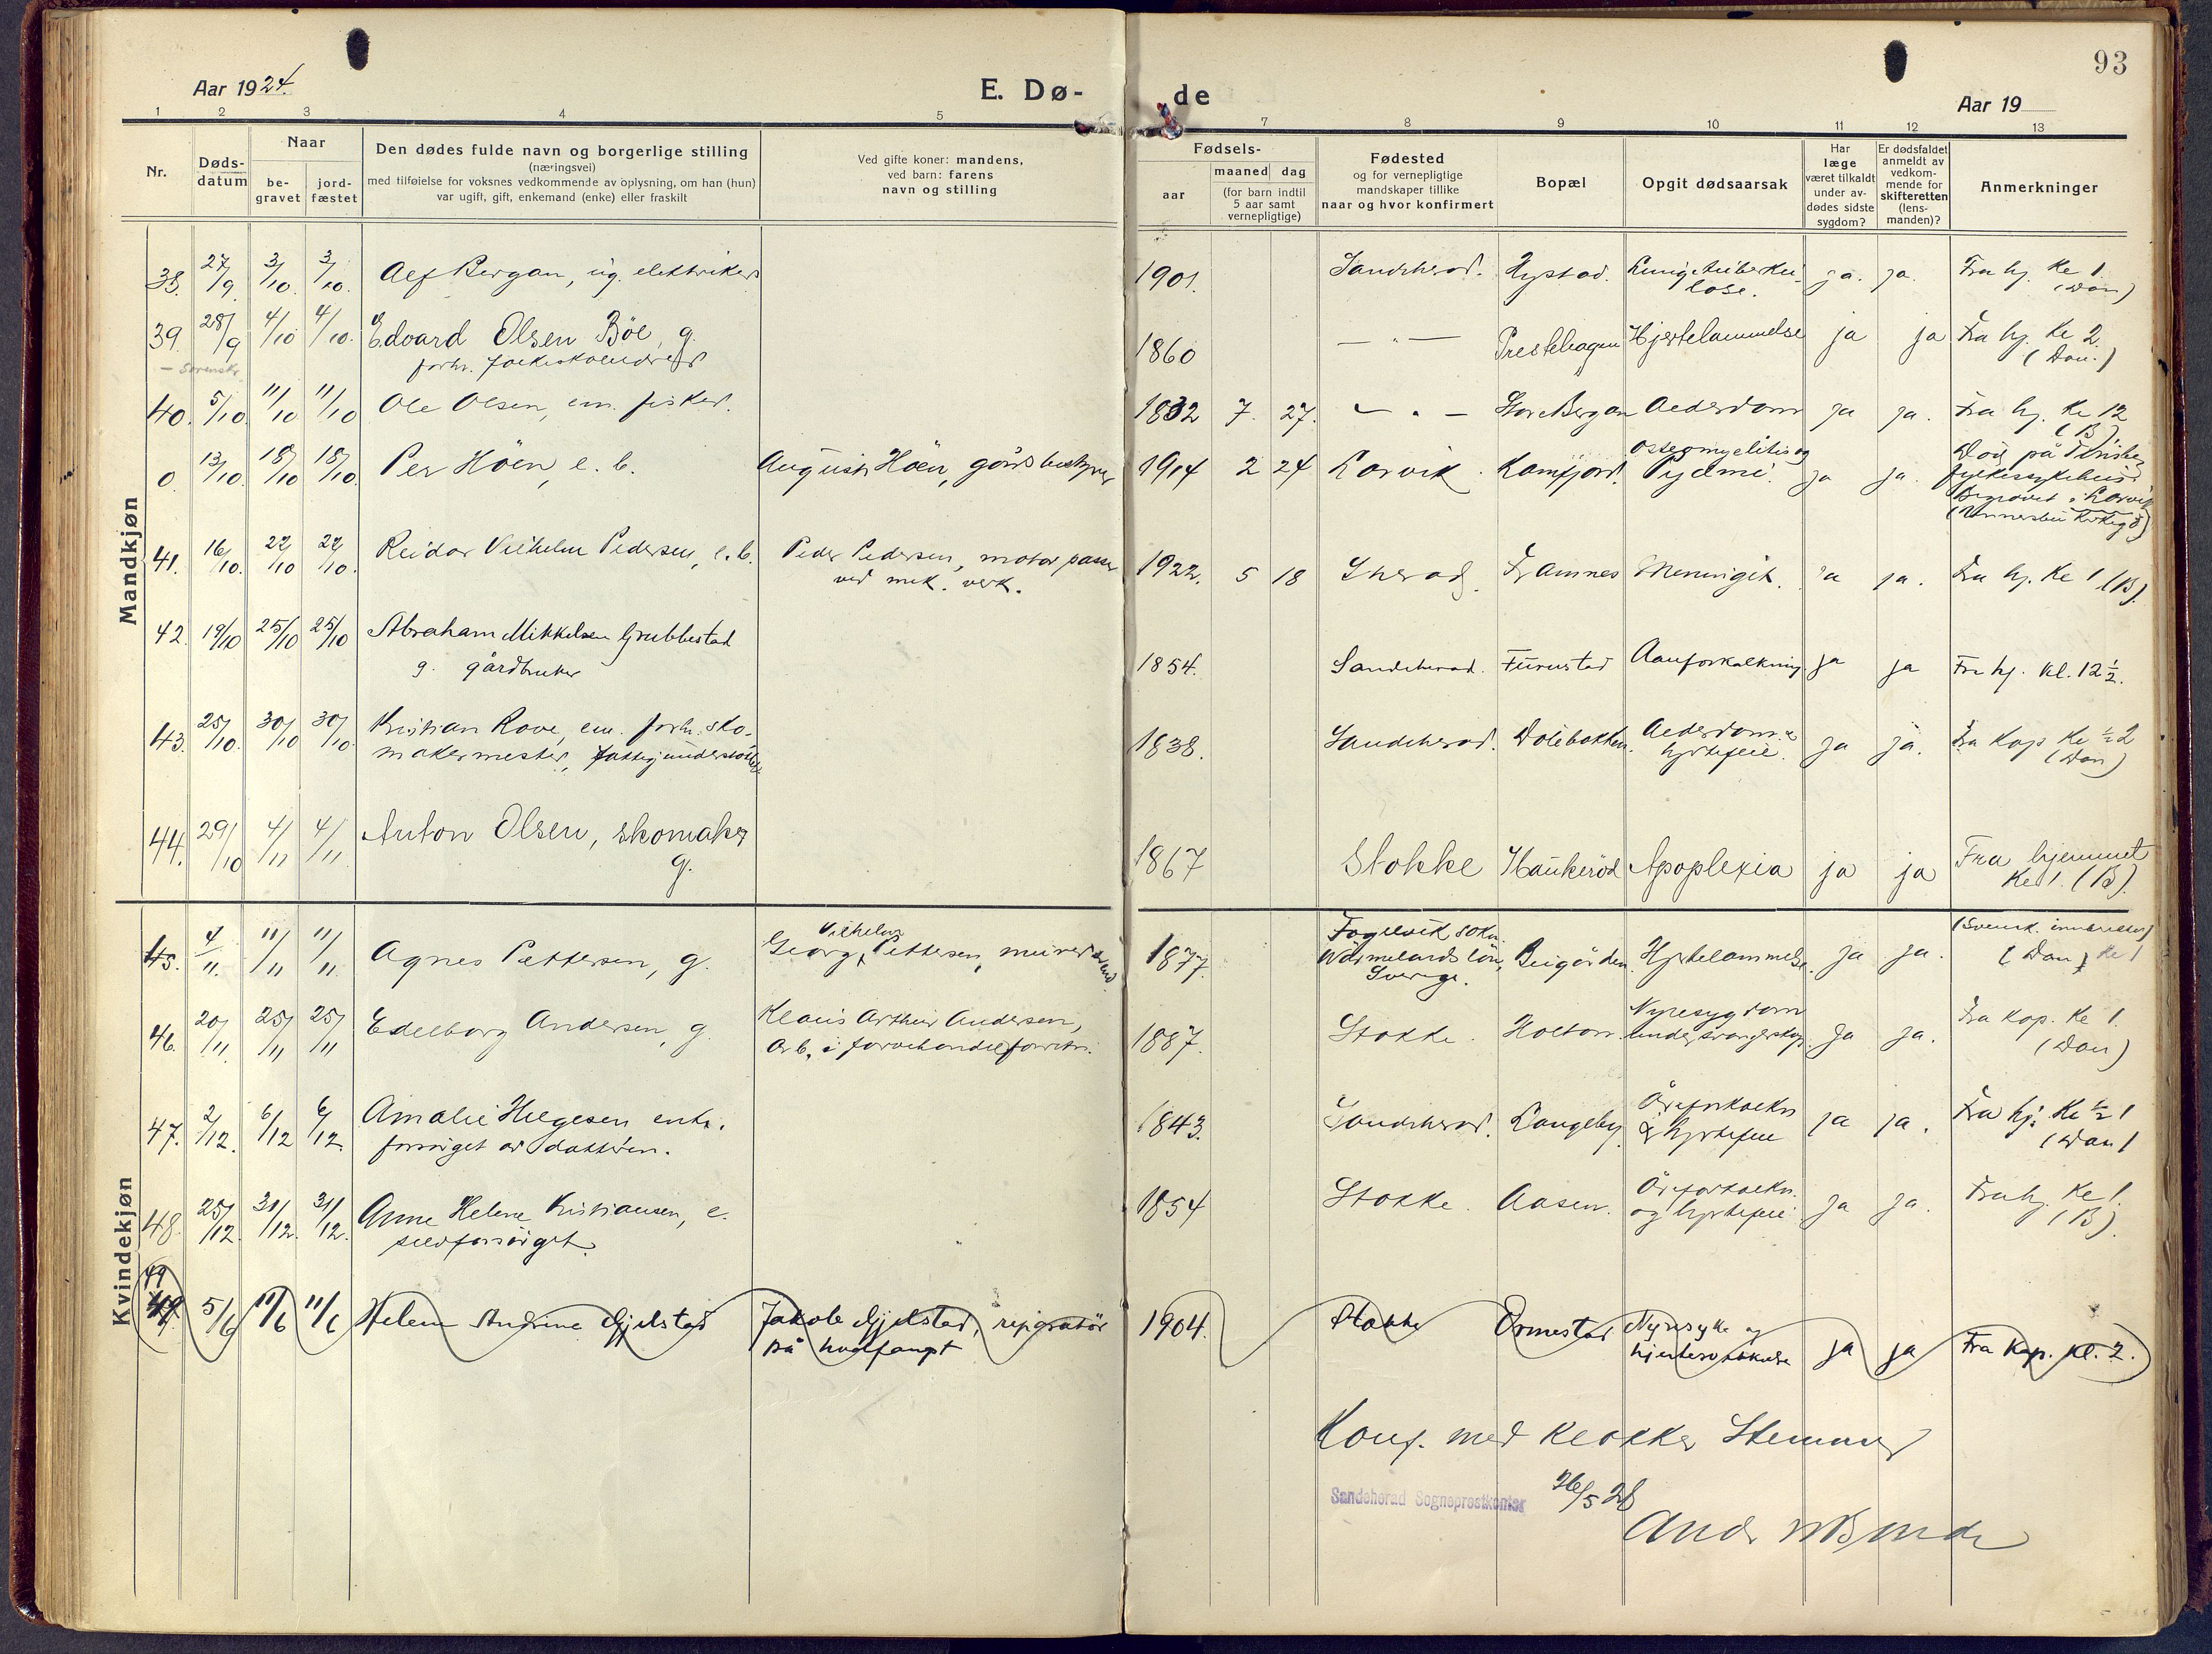 93
Aar 1924.
E. Dø-
de
Aar 19
1 2 3 4 5 7 8 9 10 11 12 13
Nr.
Døds-
datum
Naar
be-
gravet
jord-
fæstet
Den dødes fulde navn og borgerlige stilling
(næringsvei)
med tilføielse for voksnes vedkommende av oplysning, om han (hun)
var ugift, gift, enkemand (enke) eller fraskilt
Ved gifte koner: mandens,
ved barn: farens
navn og stilling
Fødsels-
aar
maaned dag
(for barn indtil
5 aar samt
vernepligtige)
Fødested
og for vernepligtige
mandskaper tillike
naar og hvor konfirmert
Bopæl
Opgit dødsaarsak
Har
læge
været tilkaldt
under av-
dødes sidste
sygdom?
Er dødsfaldet
anmeldt av
vedkom-
mende for
skifteretten
(lens-
manden)?
Anmerkninger
Mandkjøn
38. 27/9 3/10. 3/10. Alf Bergan, ug. elektriker 1901. Sandeherad. Nystad. Lungetuberku-
lose. ja. ja. Fra hj. kl 1.
(Dan)
39. 28/9 4/10 4/10. Edvard Olsen Böe, g. 1860 — " — Prestehagen Hjertelammelse ja ja Fra hj. kl 2.
(Dan.)
40. 5/10 11/10 11/10 Ole Olsen, em. fisker. 1832 7. 27. — " — Store Bergan Alderdom ja ja. Fra hj. kl 12
(B)
0. 13/10. 18/10 18/10. Per Höen, e. b. August Höen, gårdsbestyrer 1914 2 24 Larvik. Kamfjord. Osteomyelitis og
Pyemi. ja ja.
fylkessykehus.
Begravet i Larvik
41. 16/10. 22/10 22/10. Reidar Vilhelm Pedersen, e. b. Peder Pedersen, motorpasser
ved mek. verk. 1922. 5 18 Sherad. Framnes Meningit. ja ja. Fra hj. kl 1 (B).
42. 19/10 25/10 25/10 Abraham Mikkelsen Grubbestad
g. gårdbruker 1854. Sandeherad. Furustad Aarforkalkning ja ja Fra hj. kl. 12 1/2.
43. 25/10. 30/10 30/10. Kristian Rove, em. forh. sko-
makermester, fattigunderstöttet 1838. Sandeherad. Dölebakken. Alderdom &
hjertefeil. ja ja. Fra Kap kl 1/2 2
(Dan)
44. 29/10 4/11 4/11 Anton Olsen, skomaker
g. 1867 Stokke Haukeröd Apoplexia ja ja Fra hjemmet
kl 1. (B).
Kvindekjøn
45. 4/11. 11/11 11/11. Agnes Pettersen, g. Georg Vilhelm Pettersen, murer 1877. Fogelvik sokn
Wärmelands län,
Sverige. Bugården. Hjertelammelse. ja ja.
(Dan) kl 1
46. 20/11. 25/11 25/11 Edelborg Andersen, g. Klaus Arthur Andersen,
Arb. i farvehandelforretn. 1887. Stokke. Holtan. Nyresygdom
under svangerskap. ja ja. Fra kap. kl 1.
(Dan)
47. 2/12. 6/12 6/12. Amalie Helgesen enke.
forsörget av datteren. 1843. Sandeherad. Langeby. Åreforkalkn
& hjertefeil ja ja. Fra hj. kl 1/2 1
(Dan)
48. 25/12. 31/12. 31/12. Anne Helene Kristiansen, e.
selvforsörget. 1854 Stokke. Aasen. Åreforkalkn.
og hjertefeil ja ja. Fra hj. kl 1.
(B)
49 5/6 11/6 11/6 Helene Andrine Gjelstad Jakob Gjelstad, reparatör
på hvalfangst 1904. Stokke Ormestad Nyresyke og
ja ja Fra Kap. kl. 2.
Konf. med klokker
Sandeherad Sogneprestkontor
26/5 26